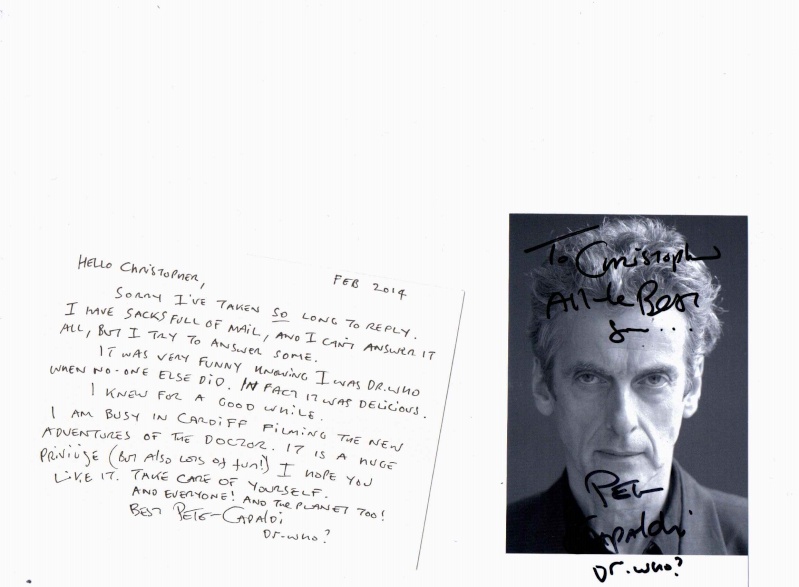 HELLO CHRISTOPHER,
FEB 2014
SORRY I'VE TAKEN SO LONG TO REPLY.
I HAVE SACKSFULL OF MAIL, AND I CAN'T ANSWER IT
ALL, BUT I TRY TO ANSWER SOME.
IT WAS VERY FUNNY KNOWING I WAS DR.WHO
WHEN NO-ONE ELSE DID. IN FACT IT WAS DELICIOUS.
I KNEW FOR A GOOD WHILE.
I AM BUSY IN CARDIFF FILMING THE NEW
ADVENTURES OF THE DOCTOR. IT IS A HUGE
PRIVILEGE (BUT ALSO LOTS OF FUN!) I HOPE YOU
LIKE IT. TAKE CARE OF YOURSELF.
AND EVERYONE! AND THE PLANET TOO!
BEST PETER CAPALDI
Dr.WHO?
To Christopher
All the Best
from....
Peter
Capaldi
Dr.WHO?